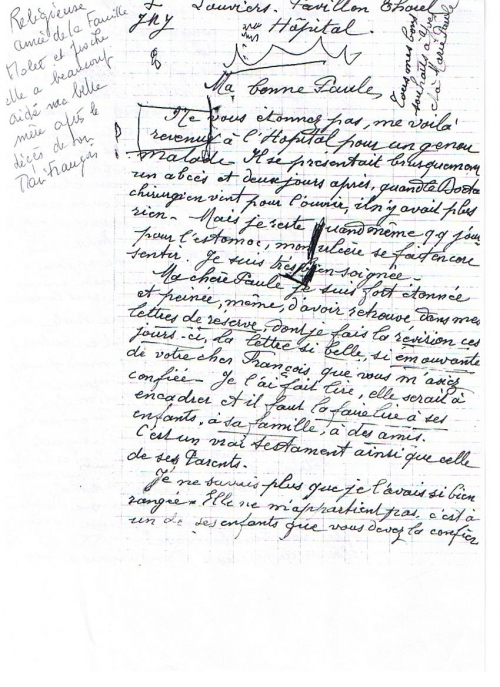 Religieuse
amie de la Famille
Molet et proche
elle a beaucoup
aidé ma belle
mère après le
décès de son
Mari François
Tous mes bons
souhaits à Yves
et à Marie Paule
Louviers. Pavillon
Hôpital.
Ma bonne Paule,
Ne vous étonnez pas, me voilà
revenue à l'Hôpital pour un genou
malade. Il se présentait brusquement
un abcès et deux jours après, quand le Docteur
chirurgien vint pour l'ouvrir, il n'y avait plus
rien. Mais je reste quand même qq jours
pour l'estomac, mon ulcère se fait encore
sentir. Je suis très bien soignée.
Ma chère Paule je suis fort étonnée
et peinée, même, d'avoir retrouvé dans mes
lettres de réserve, dont je fais la révision ces
jours-ci, la lettre si belle, si émouvante
de votre cher François que vous m'aviez
confiée. Je l'ai fait lire, elle serait à
encadrer et il faut la faire lire à ses
enfants, à sa famille, à des amis.
C'est un vrai testament ainsi que celle
de ses Parents.
Je ne savais plus que je l'avais si bien
rangée. Elle ne m'appartient pas. c'est à
un de ses enfants que vous devez la confier